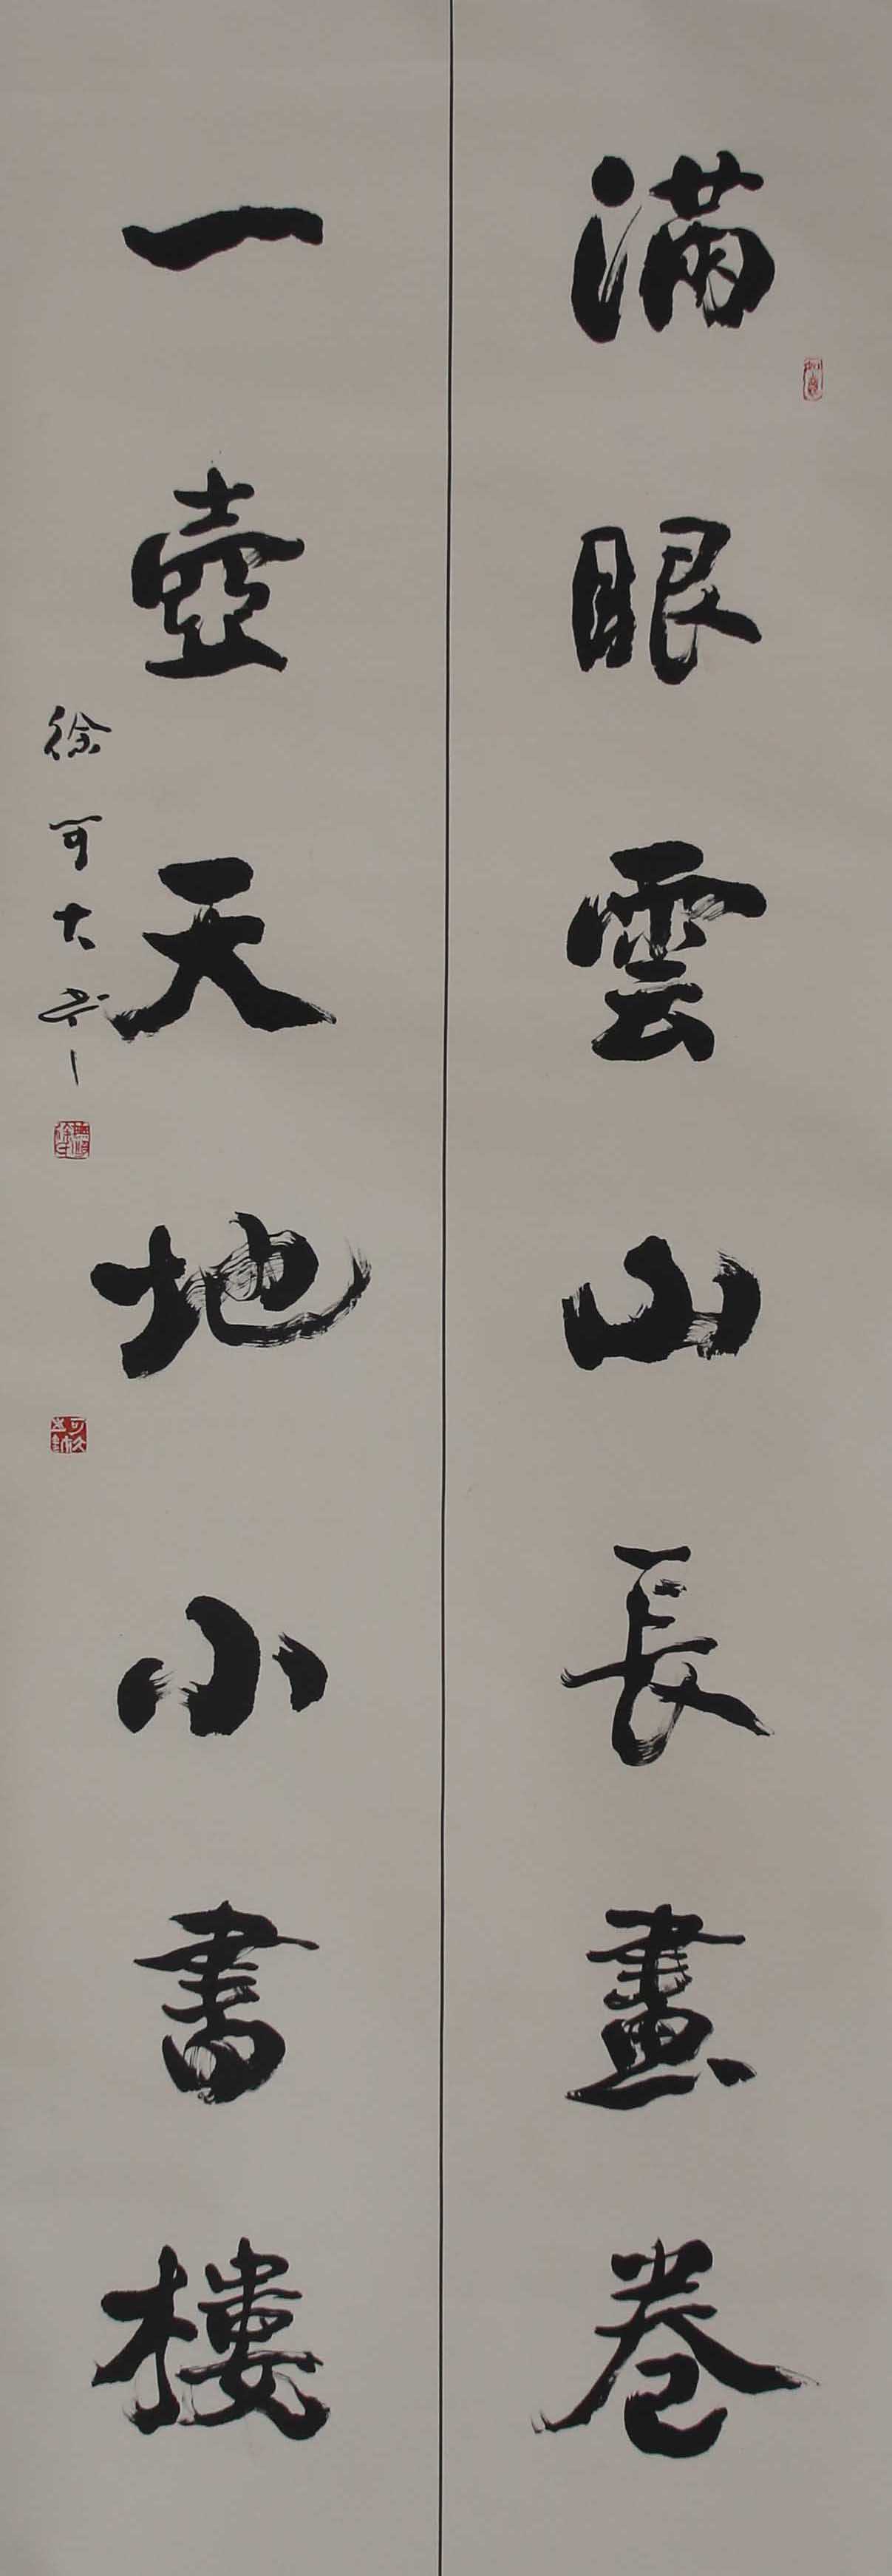 滿眼雲山長畫卷
一壺天地小書樓
徐可大書